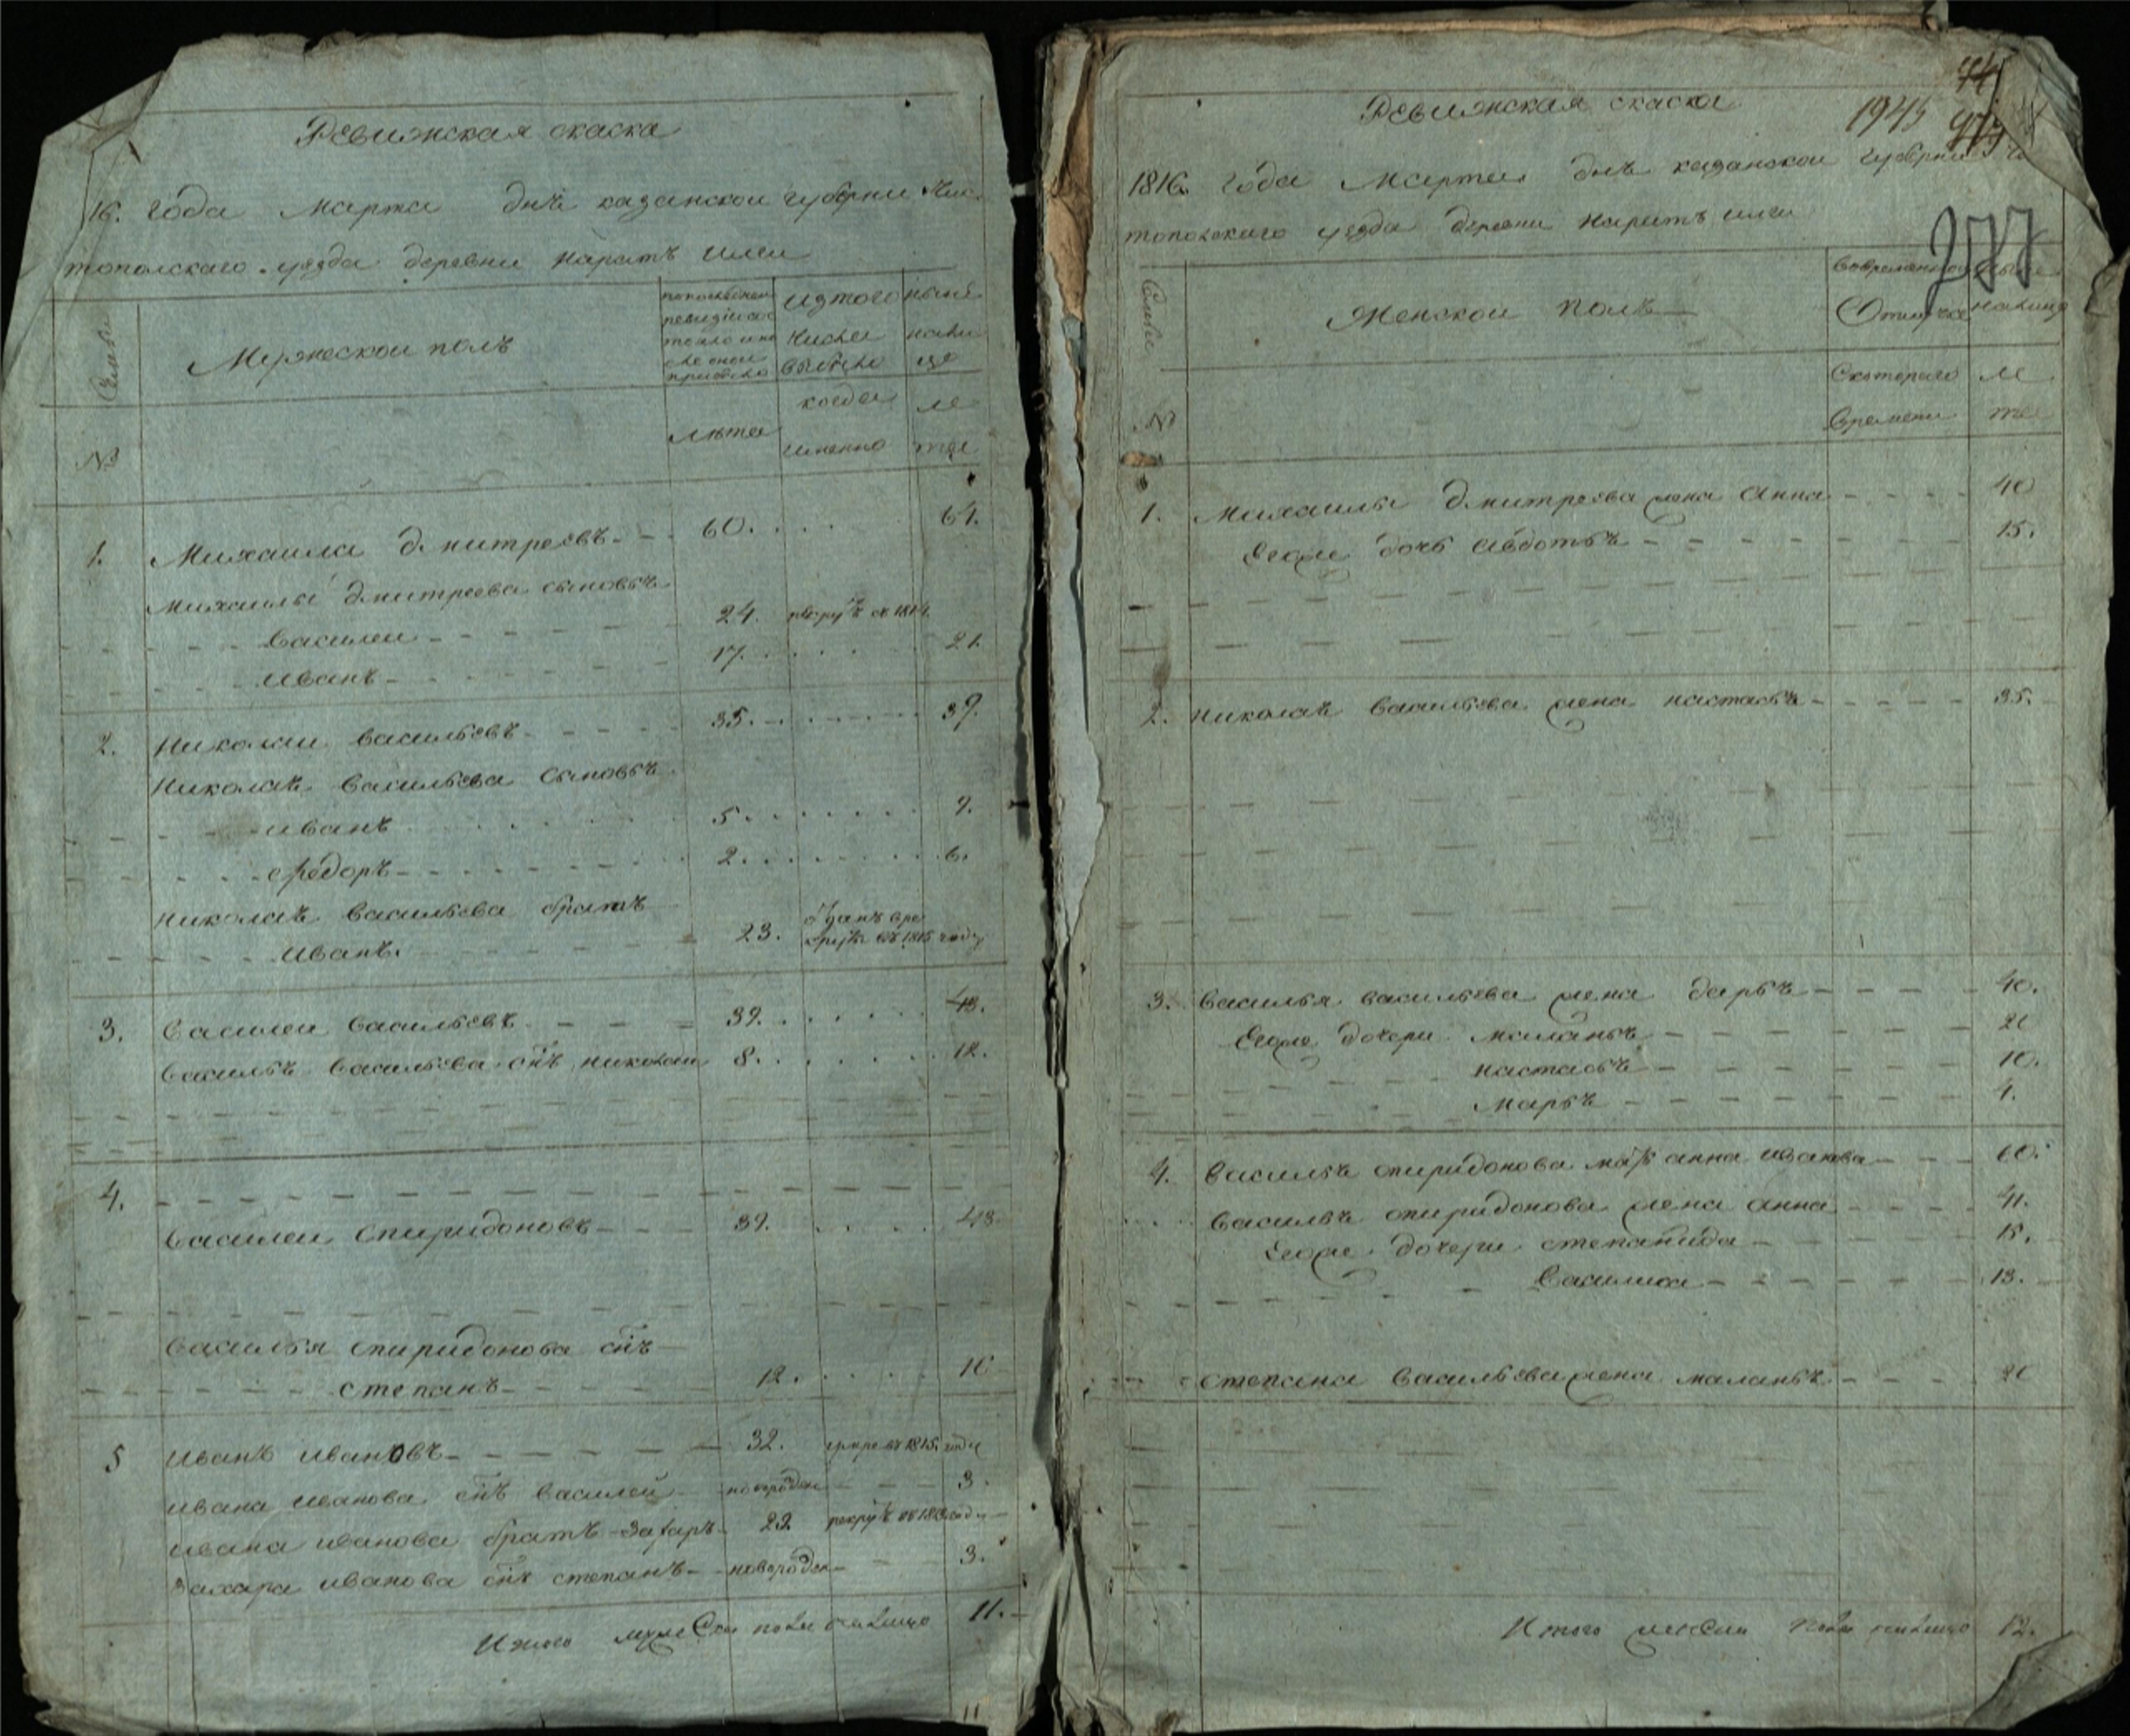 Ревижская скаска
16. года Марта дня казанской губерни Чис
топольского уезда деревни Наратъ илги
Семьи
№
Мужеской полъ
по последней
ревизии со
стояло и по
сле оной
прибыло
лета
из того
числа
выбыло
когда
именно
ныне
нали
цо
ле
та
1. Михаила дмитреевъ 60. 64.
Михаилы дмитреева сыновьѣ
василеи 24. рекрутъ въ 1814.
иванъ 17. 21.
2. Николаи васильевъ 35. 39.
Николаѣ васильева сыновьѣ
иванъ 5 9.
федоръ 2. 6.
Николаѣ васильева братъ
иванъ. 23. зданъ вре
круты въ 1815 году
3. василеи васильевъ 39. 43.
васильѣ васильева снъ николаи 8. 12.
4.
василеи спиридоновъ 39. 43
василья спиридонова снъ
степанъ 12. 16
5 иванъ ивановъ 32. умре въ 1815. году
ивана иванова снъ василей новорожден 3.
ивана иванова братъ захаръ 23. рекрутъ въ 1813 году
захара иванова снъ степанъ новорожден 3.
Итого мужеска пола налицо 11.
11
74
Ревижская скаска
1945
277
1816. года Марта дня казанской губерни Чи
топольскаго уезда деревни Наратъ илги
Семьи
№
Женской полъ
во временной
Отлучке
Скотораго
времени
ныне
налицо
ле
та
1. Михаилы дмитреева жена анна 40
Егоже дочь авдотьѣ 15.
2. николаѣ васильева жена настасьѣ 35.
3. василья васильева жена дарьѣ 40.
Егоже дочери маланьѣ 20
настасьѣ 10.
марьѣ 4.
4. васильѣ спиридонова мать анна иванова 60.
васильѣ спиридонова жена анна 41.
Егоже дочери степанида 15.
василиса 13.
степана васильева жена маланьѣ 20
Итого женска пола налицо 12.